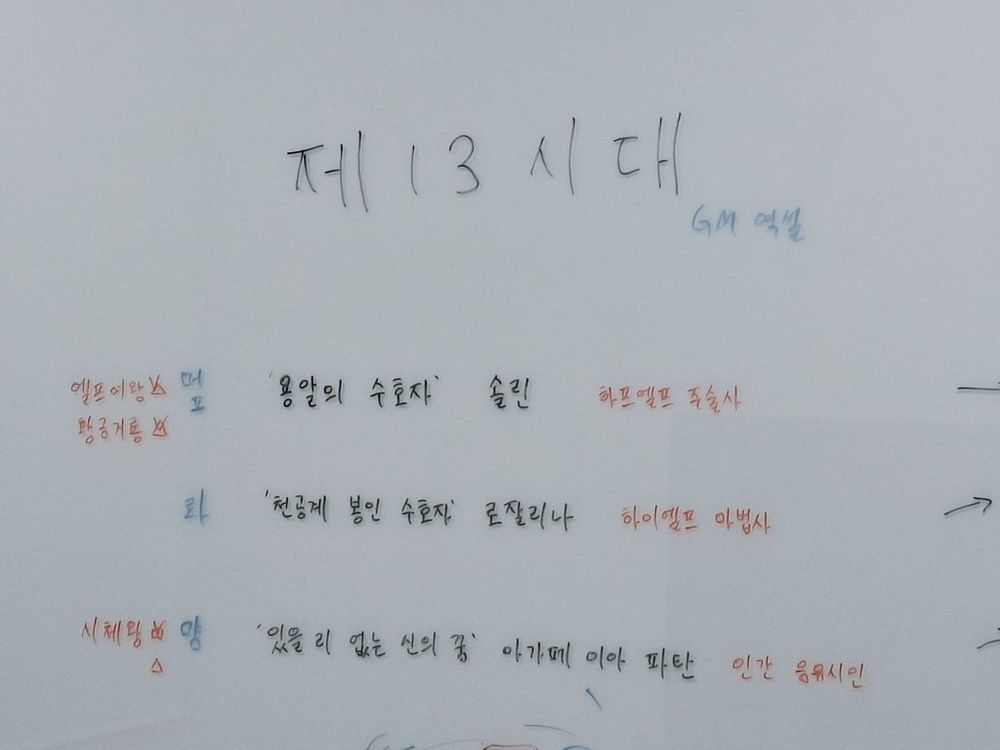 제 13 시대
GM 역설
엘프여왕 머프 '용알의 수호자' 솔린 하프엘프 주술사
황금거룡
라 '천공계 봉인 수호자' 로잘리나 하이엘프 마법사
시체왕 양 '있을 리 없는 신의 꿈' 아가페 이아 파탄 인간 음유시인